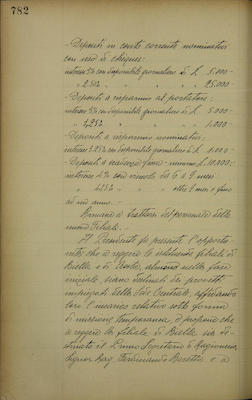 782
- Depositi in conto corrente nominativi
con uso di cheques:
interesse % con disponibilità giornaliera di L. 5.000 -
" 2.50% " " 25.000 -
- Depositi a risparmio al portatore:
interesse 3% con disponibilità giornaliera di L. 3.000 -
" " 1.000 -
- Depositi a risparmio nominativi:
interesse 3.25% con disponibilità giornaliera L. 1.000 -
- Depositi a scadenza fissa - minimo L. 10.000:
interesse 4% con vincolo da 6 a 9 mesi
" 4.25% " " oltre 9 mesi e fino
ad un anno. -
Nomina e trattam. del personale delle
nuove Filiali. -
Il Presidente fa presente l'opportu-
nità che a reggere le istituende filiali di
Biella e di , almeno nella fase
iniziale, siano destinati dei provetti
impiegati della Sede Centrale, affidando
loro l'incarico relativo sotto forma
di missione temporanea, e propone che
a reggere la filiale di Biella sia de-
stinato il Primo Segretario di Ragioneria,
Signor Rag. Ferdinando e a